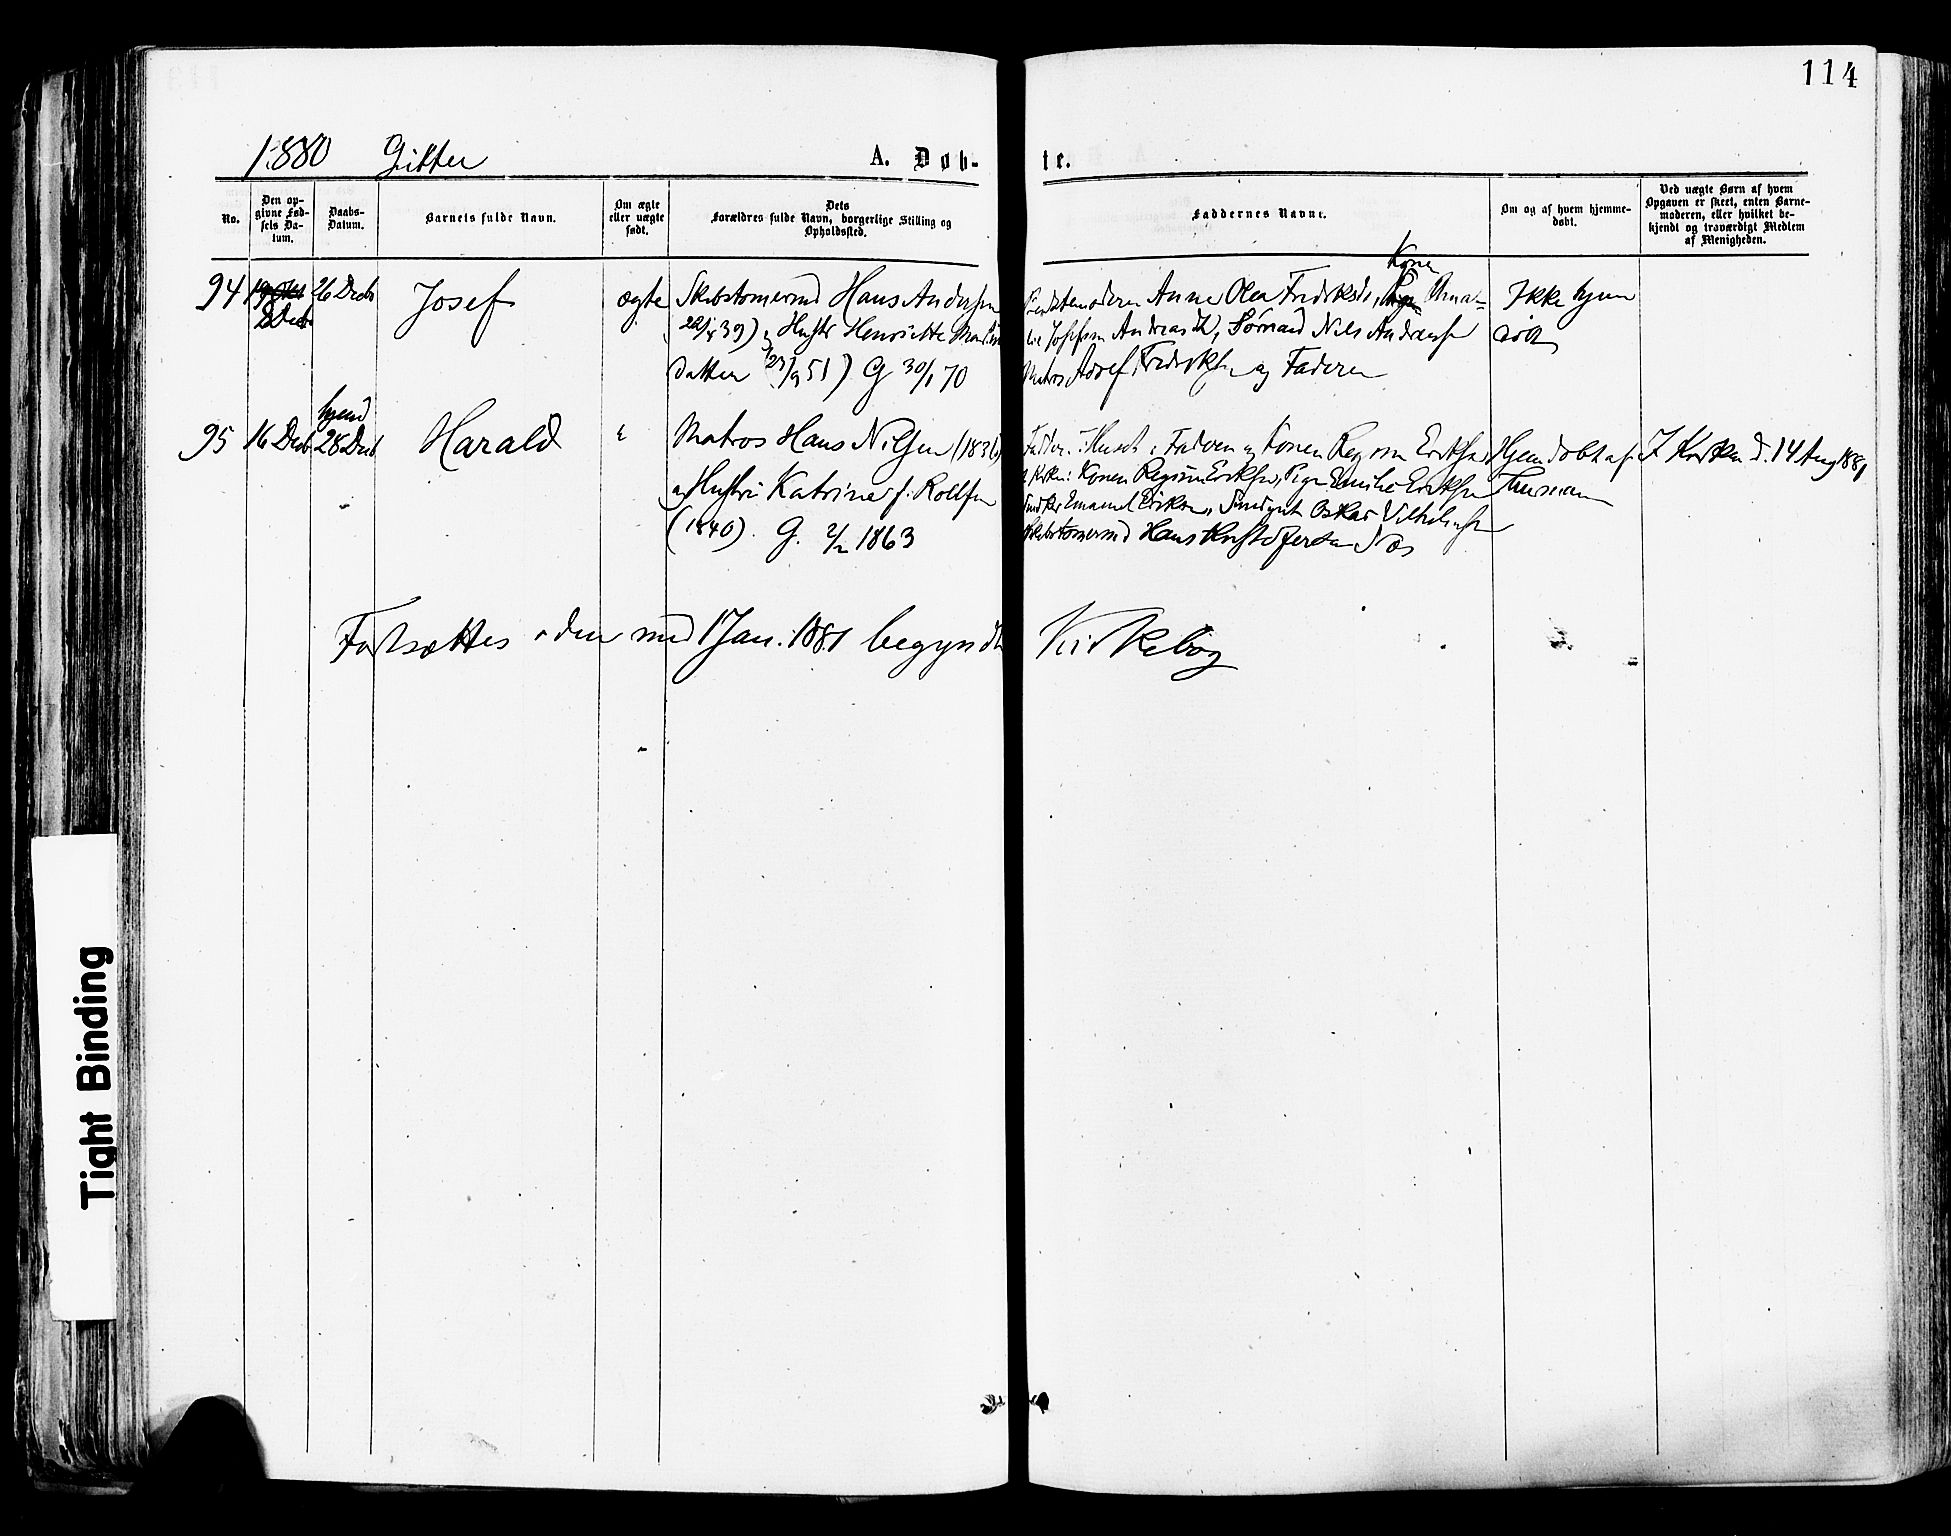 114
1880 Gitter A. Døb- te.
No.
Den op-
givne Fød-
sels Da-
tum.
Daabs-
Datum.
Barnets fulde Navn.
Om ægte
eller uægte
født.
Dets
Forældres fulde Navn, borgerlige Stilling og
Opholdssted.
Faddernes Navne.
Om og af hvem hjemme-
døbt.
Ved uægte Børn af hvem
Opgaven er skeet, enten Barne-
moderen, eller hvilket be-
kjendt og troværdigt Medlem
af Menigheden.
94
2 Decb
26 Decb
Josef
ægte
Skibstømermd Hans Andersen
39) og Hustr Henriette
datter (23/9 51) G 30/1 70
Kone
Anne Olea
Andreas Nils
Matros Adolf og Faderen
Ikke hjem
døbt
95
16 Decb
hjemd
28 Decb
Harald
"
Matros Hans Nilsen (1836)
og Hustru Katrine f. Rolfsen
(1840). G. 2/2 1863
i Huset: Faderen og Konen
i Kirken: Konen Regine Eriksen, Pige Emilie Eriksen
Emanuel Erikson, Oskar Vilhelmsen
Skibstømermd Hans Kristofersen Næs
Hjemdøbt af
I Kirken d. 14 Aug 1881
Fortsættes i den med 1 Jan. 1881 begyndte Kirkebog
Tight Binding